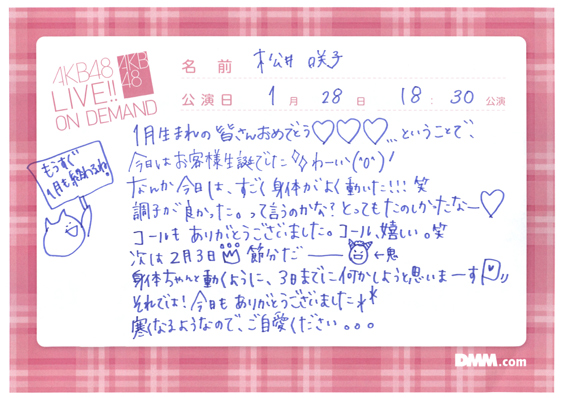 AKB48
LIVE!!
ON DEMAND
AKB
48
名前 松井 咲子
公演日 1月 28日 18:30公演
1月生まれの皆さんおめでとう♡♡♡...ということで、
今日はお客様生誕でした わーい(^o^)/
なんか今日は、すごく身体がよく動いた!!!笑
調子が良かった。って言うのかな?とってもたのしかったなー♡
コールもありがとうございました。コール、嬉しい。笑
次は2月3日 節分だー ←鬼
身体ちゃんと動くように、3日までに何かしようと思いまーす
それでは!今日もありがとうございました
寒くなるようなので、ご自愛ください。。。
もうすぐ
1月も終わるね!
DMM.com